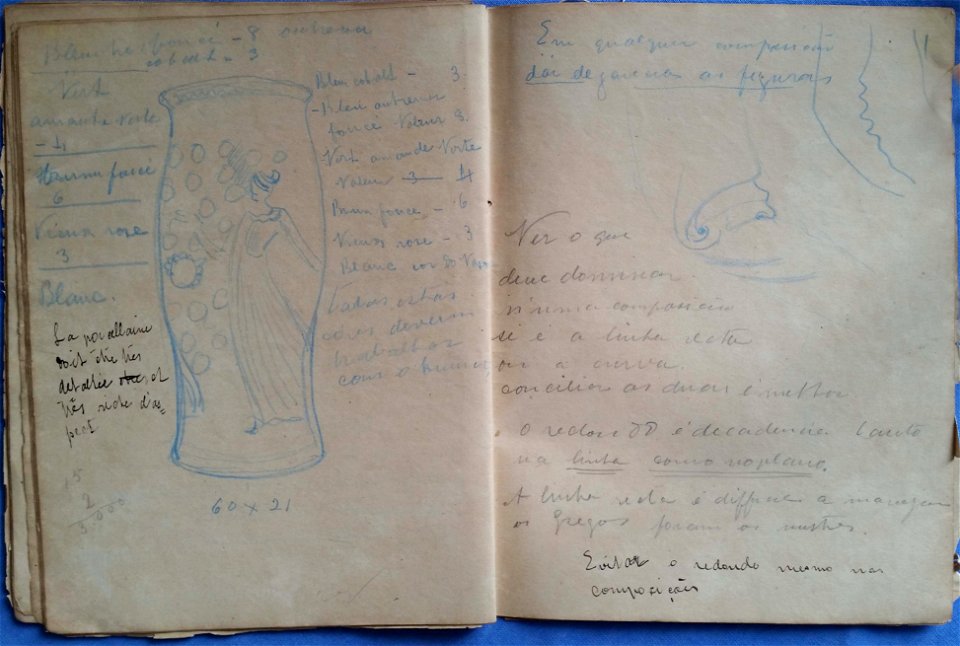 Bleu foncé - 8 outremer
cobalt - 3
Vert
amande verte
- 4
Brun foncé
6
Vieux rose
3
Blanc.
La porcellaine
doit être très
detaillée et
très riche d'as-
pect
15
2
3.000
Bleu cobalt - 3.
- Bleu outremer
foncé Valeur 8.
Vert amande Verte
Valeur 3 4
Brun foncé - 6
Vieux rose - 3
Blanc cor do Vaso
todas estas
côres devem
trabalhar
com o
60 x 21
Em qualquer composição
dar as figuras
Ver o que
deve dominar
n'uma composição
si é a linha reta
ou a curva.
conciliar as duas é melhor
o redondo é decadencia tanto
na linha como no plano.
A linha reta é difficil a manejar
os Gregos foram os mestres
Evitar o redondo mesmo nas
composições